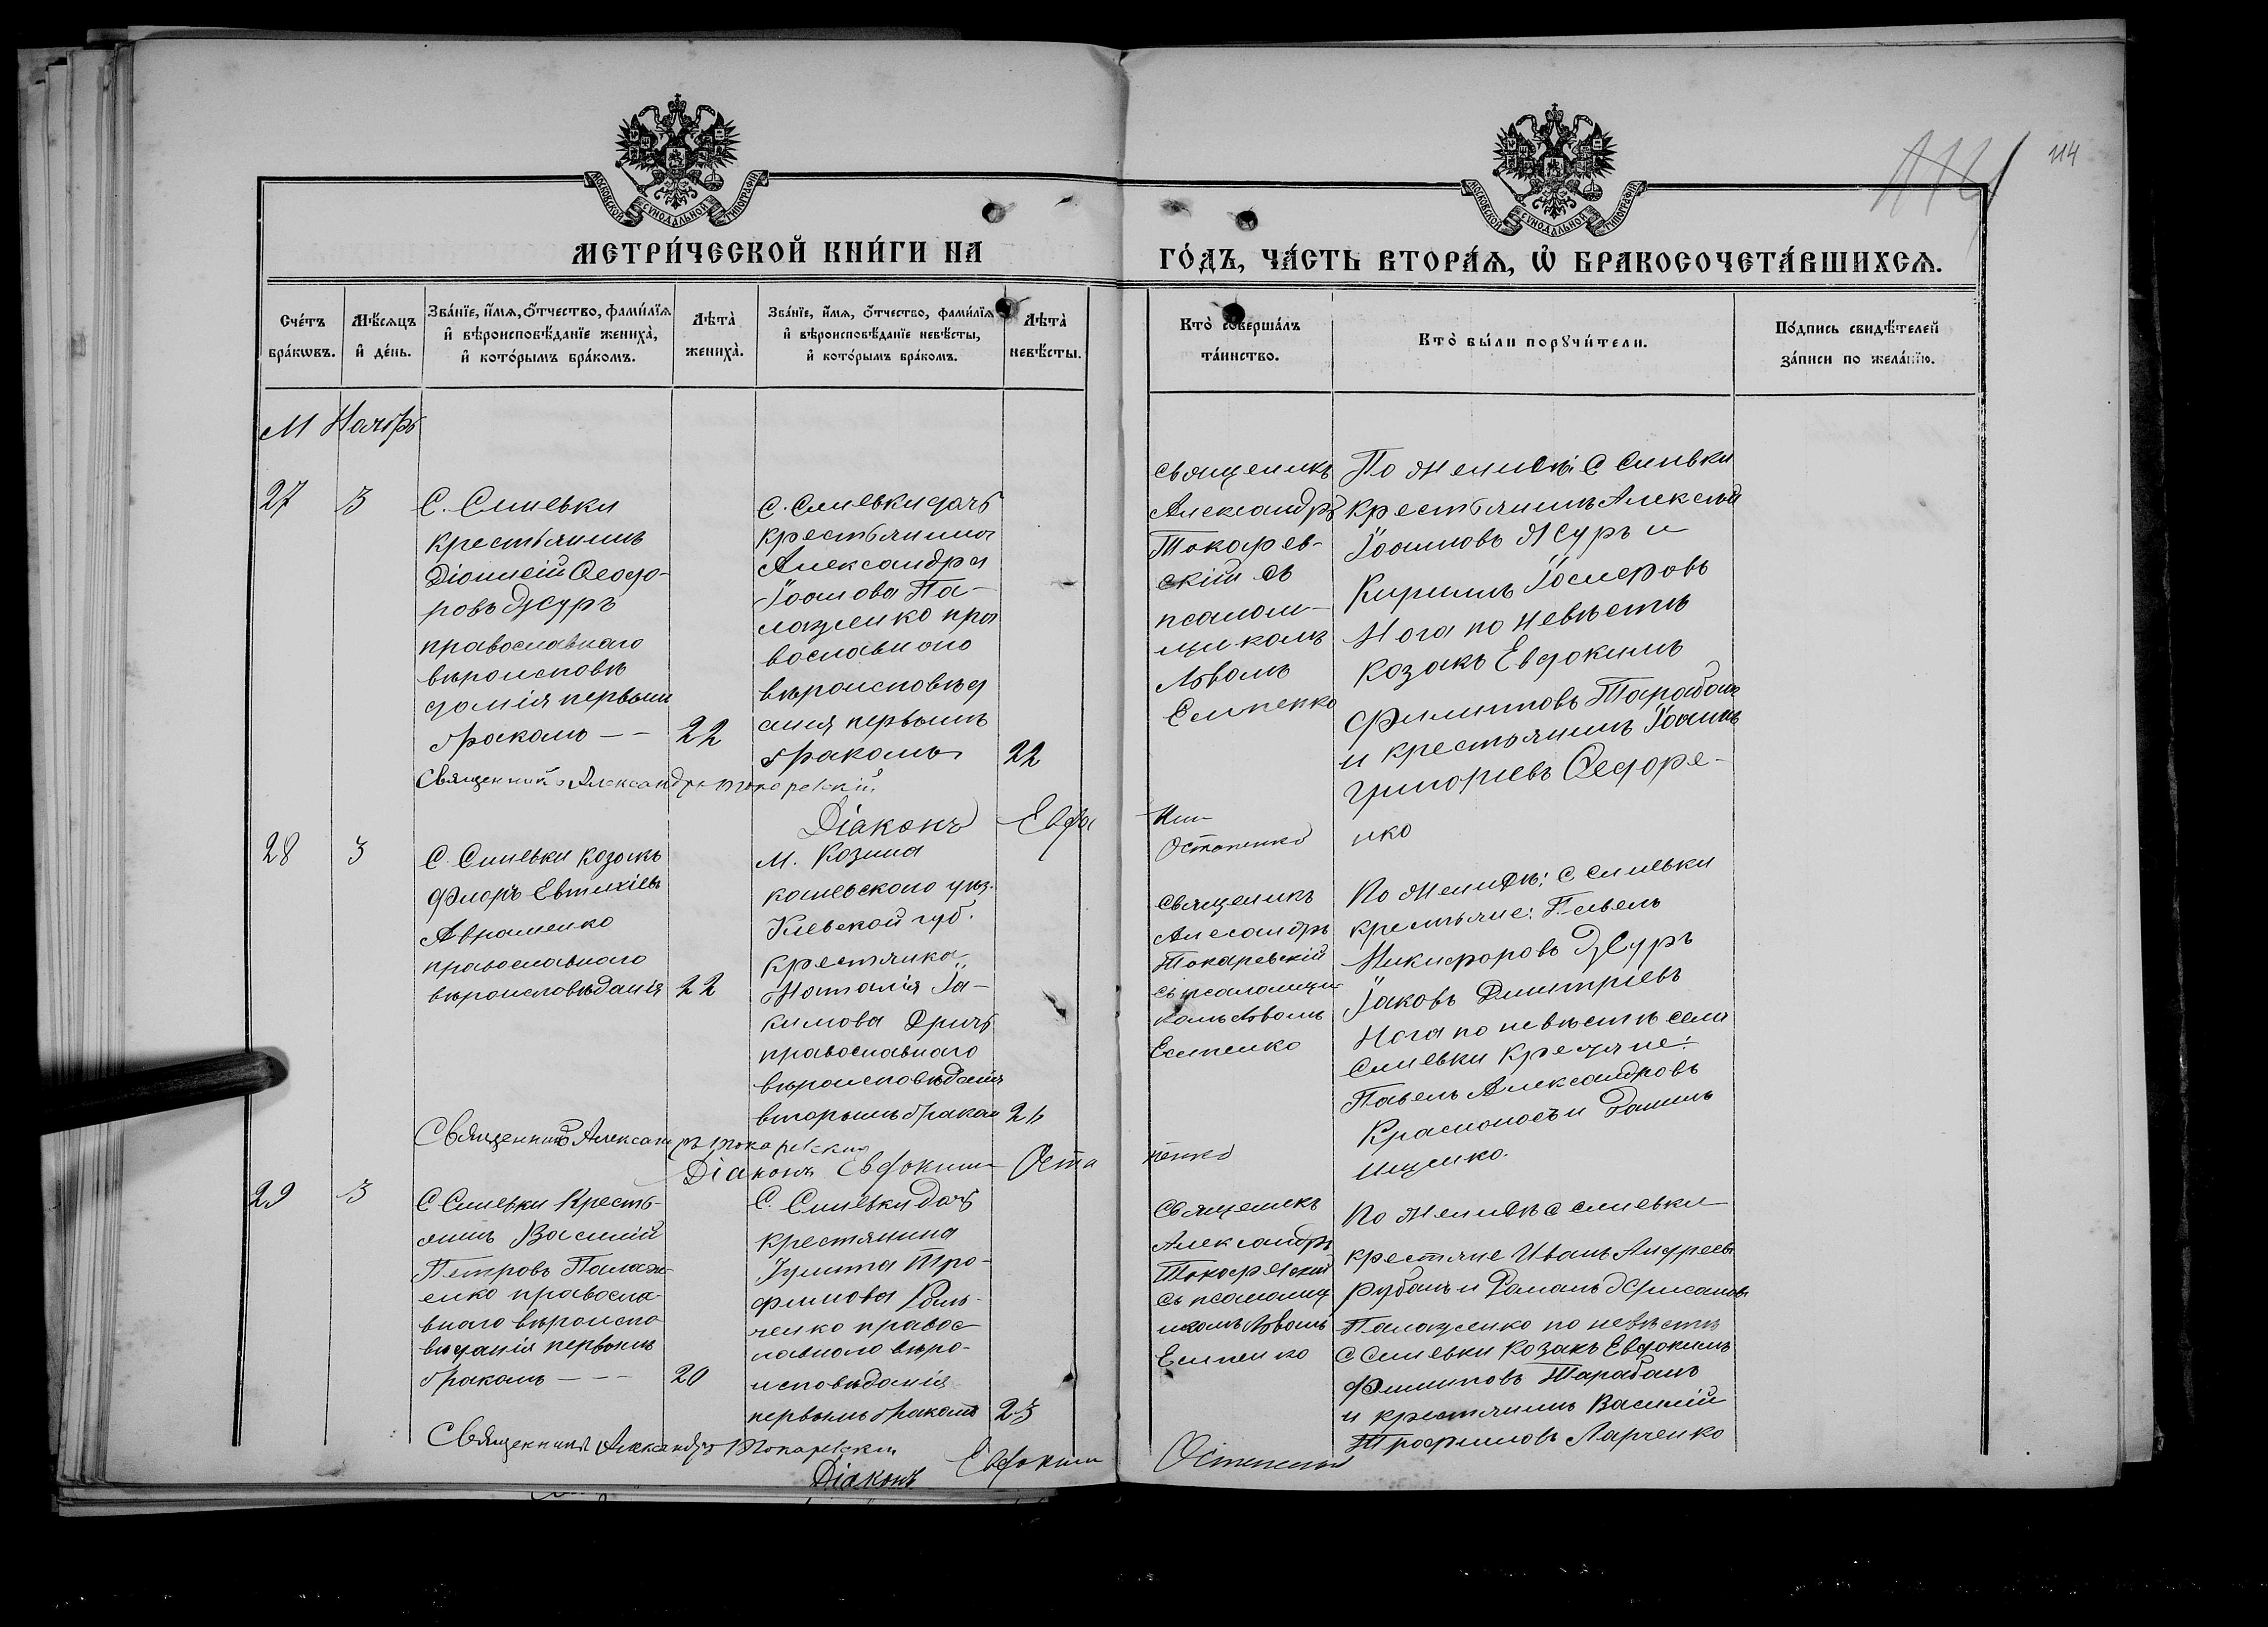 114
МОСКОВСКОЙ СѴНОДАЛЬНОЙ ТИПОГРАФІИ
МОСКОВСКОЙ СѴНОДАЛЬНОЙ ТИПОГРАФІИ
МЕТРИ́ЧЕСКОЙ КНИ́ГИ НА
ГО́ДЪ, ЧА́СТЬ ВТОРА́Ѧ, Ѽ БРАКОСОЧЕТА́ВШИХСѦ.
Сче́тъ
бра́кѡвъ.
Мѣ́сѧцъ
и҆ де́нь.
Зва́нїе, и҆́мѧ, ѻ҆́тчество, фами́лїѧ
и҆ вѣроисповѣ́данїе жениха̀,
и҆ кото́рымъ бра́комъ.
Лѣта̀
жениха̀.
Зва́нїе, и҆́мѧ, ѻ҆́тчество, фами́лїѧ
и҆ вѣроисповѣ́данїе невѣ́сты,
и҆ кото́рымъ бра́комъ.
Лѣта̀
невѣ́сты.
Кто̀ соверша́лъ
та́инство.
Кто̀ бы́ли порꙋчи́тели.
По́дпись свидѣ́телей
за́писи по жела́нїю.
М Ноябрь
27
3
С. Слиевки
крестьянинъ
Діонисій Ѳеодо-
ровъ Джуръ
православнаго
вѣроисповѣ
данія первымъ
бракомъ — —
22
С. Слиевки дочь
крестьянина
Александра
Іоанова Па-
лаженко пра
вославного
вѣроисповѣд
анія первымъ
бракомъ
22
Священикъ
Александръ
Токарев-
скій съ
псалом-
щикомъ
Львомъ
Есипенко
По женихѣ: С Слиевки
крестьянинъ Алексѣй
Іоанновъ Джуръ и
Кириллъ
Нога по невѣстѣ
козакъ Евдокимъ
Филиповъ Тарабанъ
и крестьянинъ Іоаннъ
Григоріевъ Ѳедоре-
нко
Священникъ Александръ Токаревскій
Діаконъ Евдо
ким
Остапенко
28
3
С. Слиевки козакъ
Флоръ Евтихіевъ
Авраменко
православнаго
вѣроисповѣданія
22
М. Козина
каневского уѣз.
Кіевской губ.
крестянка
Наталія Іа-
кимова
православнаго
вѣроисповѣданія
вторымъ браком
26
Священикъ
Алесандръ
Токаревскій
съ псаломщи
комъ Львомъ
Есипенко
По женихѣ: С Слиевки
крестьяне: Павелъ
Никифоровъ Джуръ
Іаковъ Дмитріевъ
Нога по невѣстѣ села
Слиевки
Павелъ Александровъ
Красноносъ и
Ищенко.
Священникъ Александръ Токаревскій
Діаконъ Евдоким Оста
пенко
29
3
С Слиевки Кресть-
янинъ Василій
Петровъ Палаж-
енко правосла
внаго вѣроиспо
вѣданія первымъ
бракомъ — — —
20
С. Слиевки дочь
крестянина
Іулитта Тро-
фимова
ченко правос
лавного вѣро-
исповѣданія
первымъ бракомъ
23
Священикъ
Александръ
Токаревскій
съ псаломщ
икомъ Львомъ
Есипенко
По женихѣ С Слиевки
крестяне Иванъ Андреевъ
Рубанъ и Романъ
Палаженко по невѣстѣ
С Слиевки Козакъ Евдокимъ
Филиповъ Тарабанъ
и крестянинъ Василій
Трофимовъ Ларченко
Священникъ Александръ Токаревскій
Діаконъ Евдоким
Остапенко